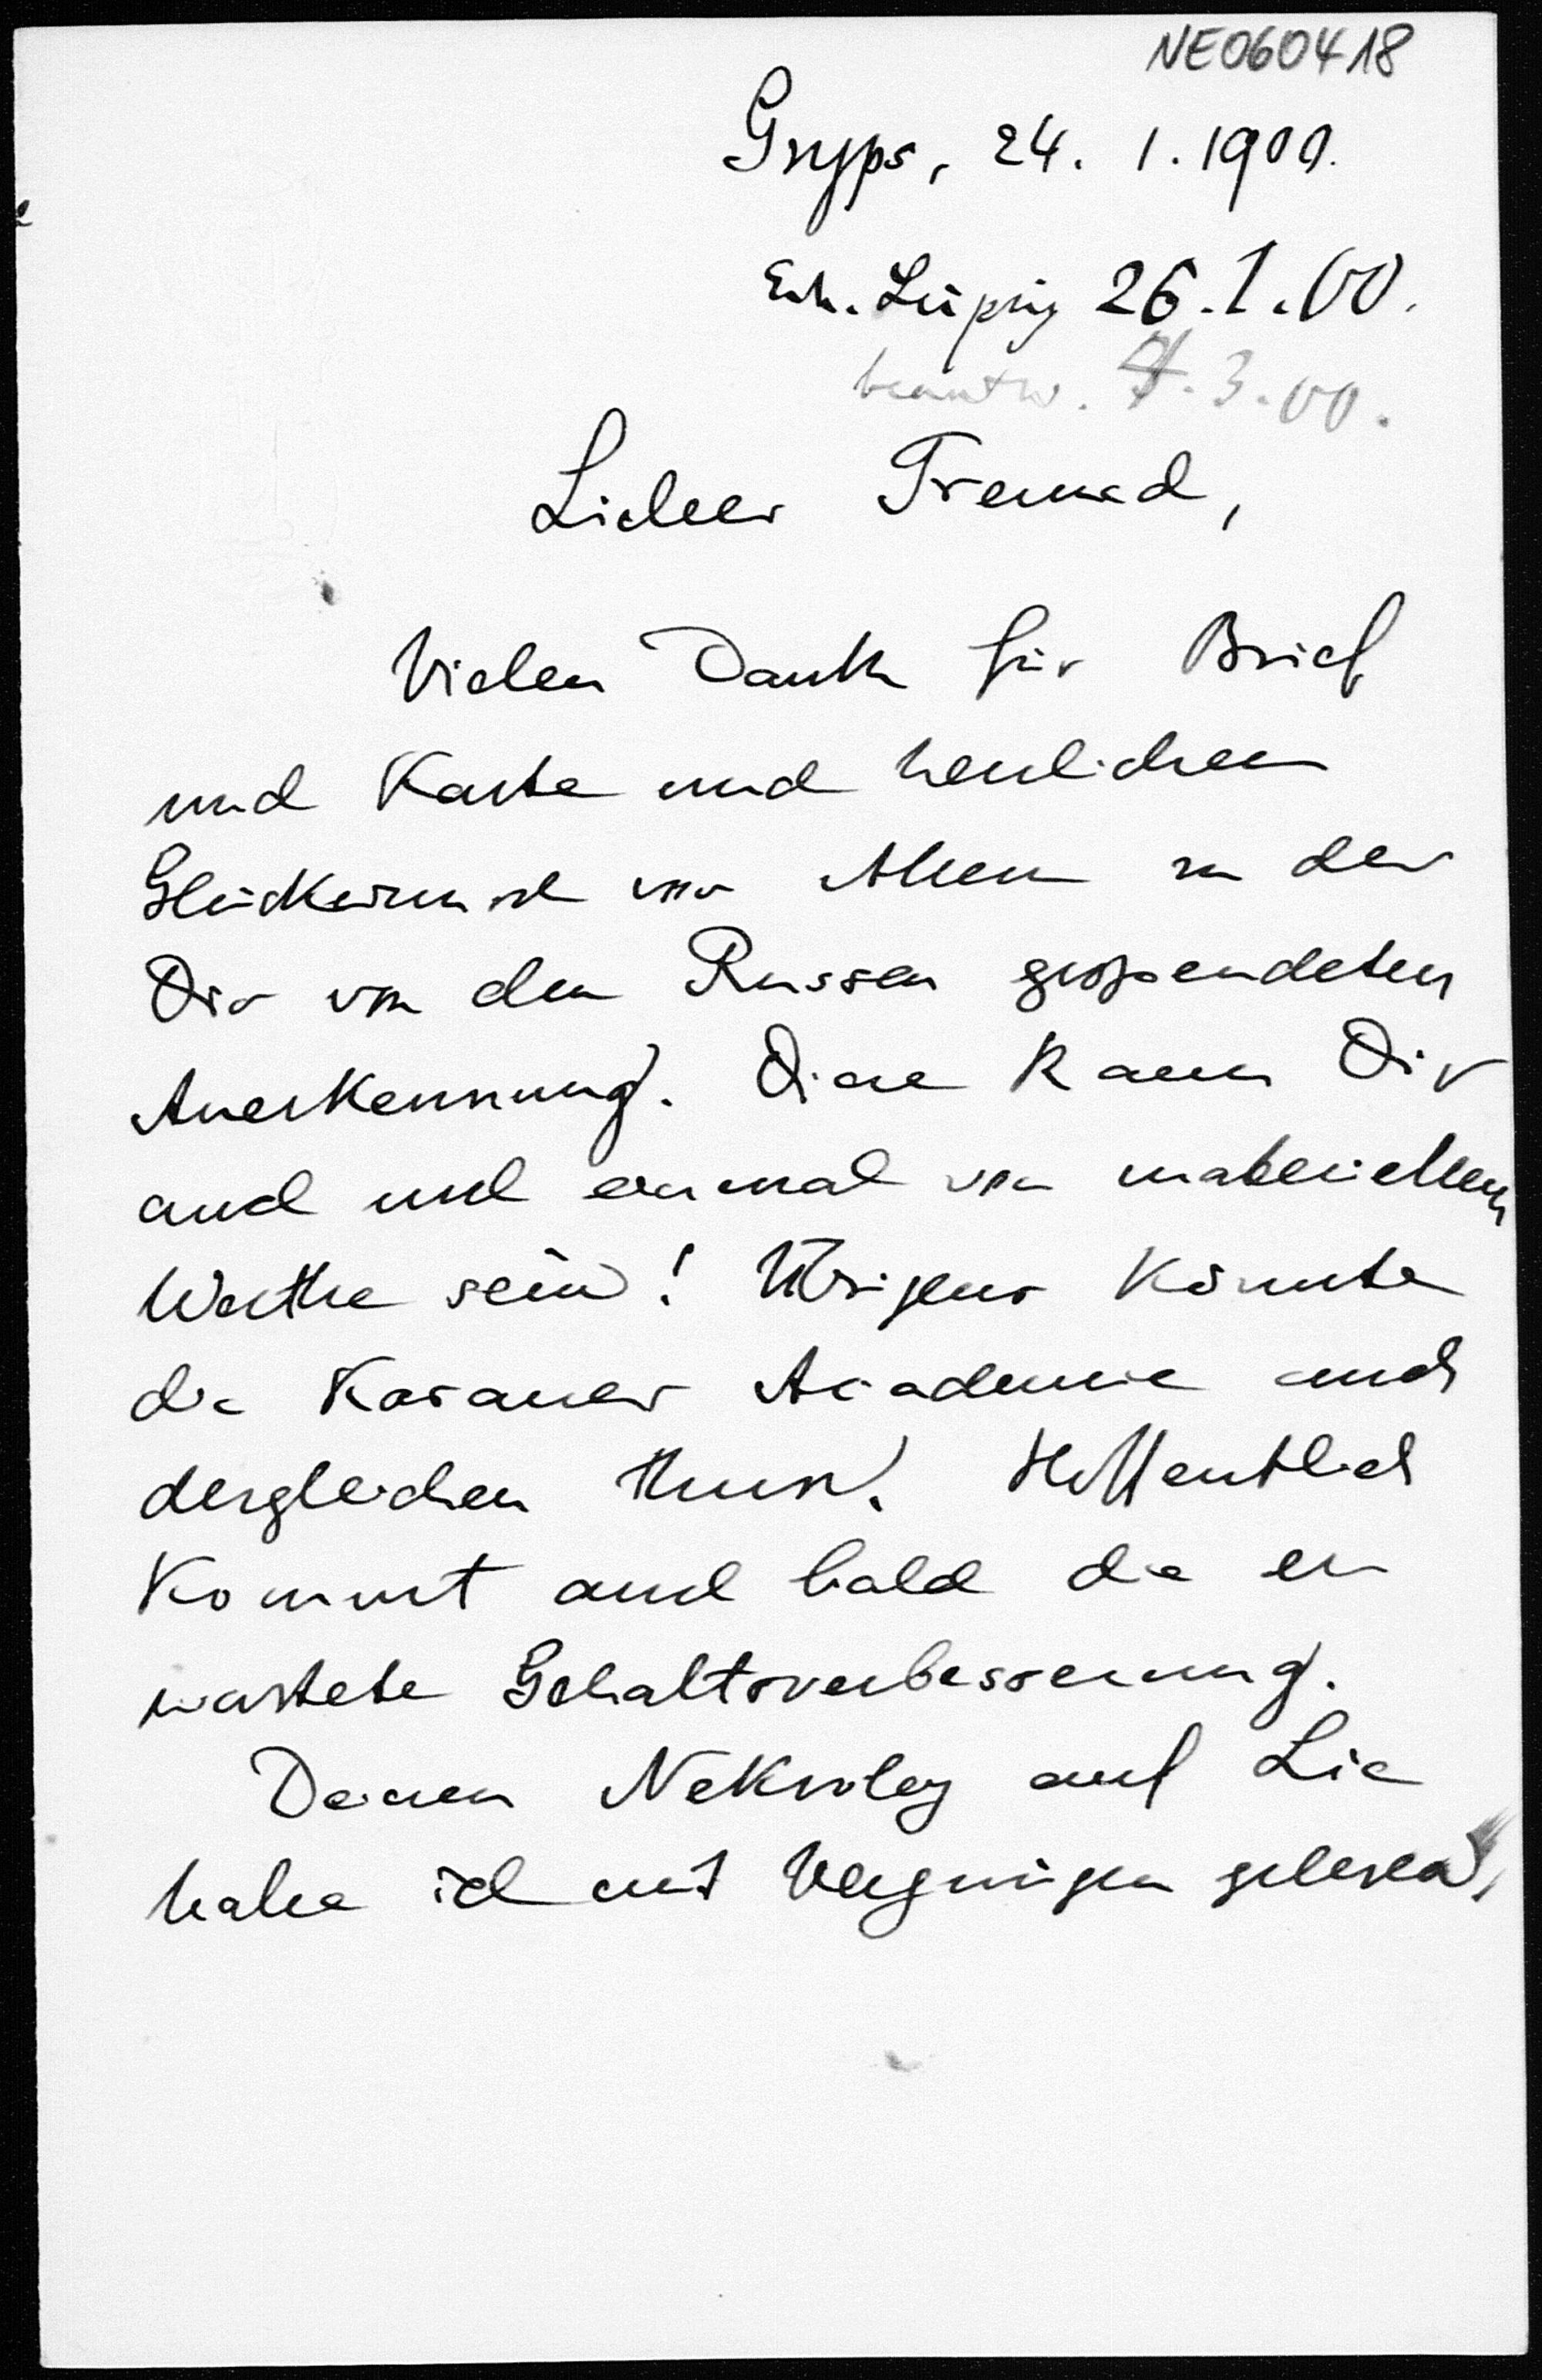 NE060418
Gryps, 24. 1. 1900.
Erh. Leipzig 26.1.00.
beantw. 3.00.
Lieber Freund,
Vielen Dank für Brief
und Karte und herzlichen
Glückwunsch vor Allem zu der
Dir von den Russen gespendeten
Anerkennung. Diese kann Dir
auch noch einmal von materiellem
Werthe sein! Übrigens könnte
die Kasaner Academie auch
dergleichen thun. Hoffentlich
kommt auch bald die er
wartete Gehaltsverbesserung.
Deinen Nekrolog auf Lie
habe ich mit Vergnügen gelesen,